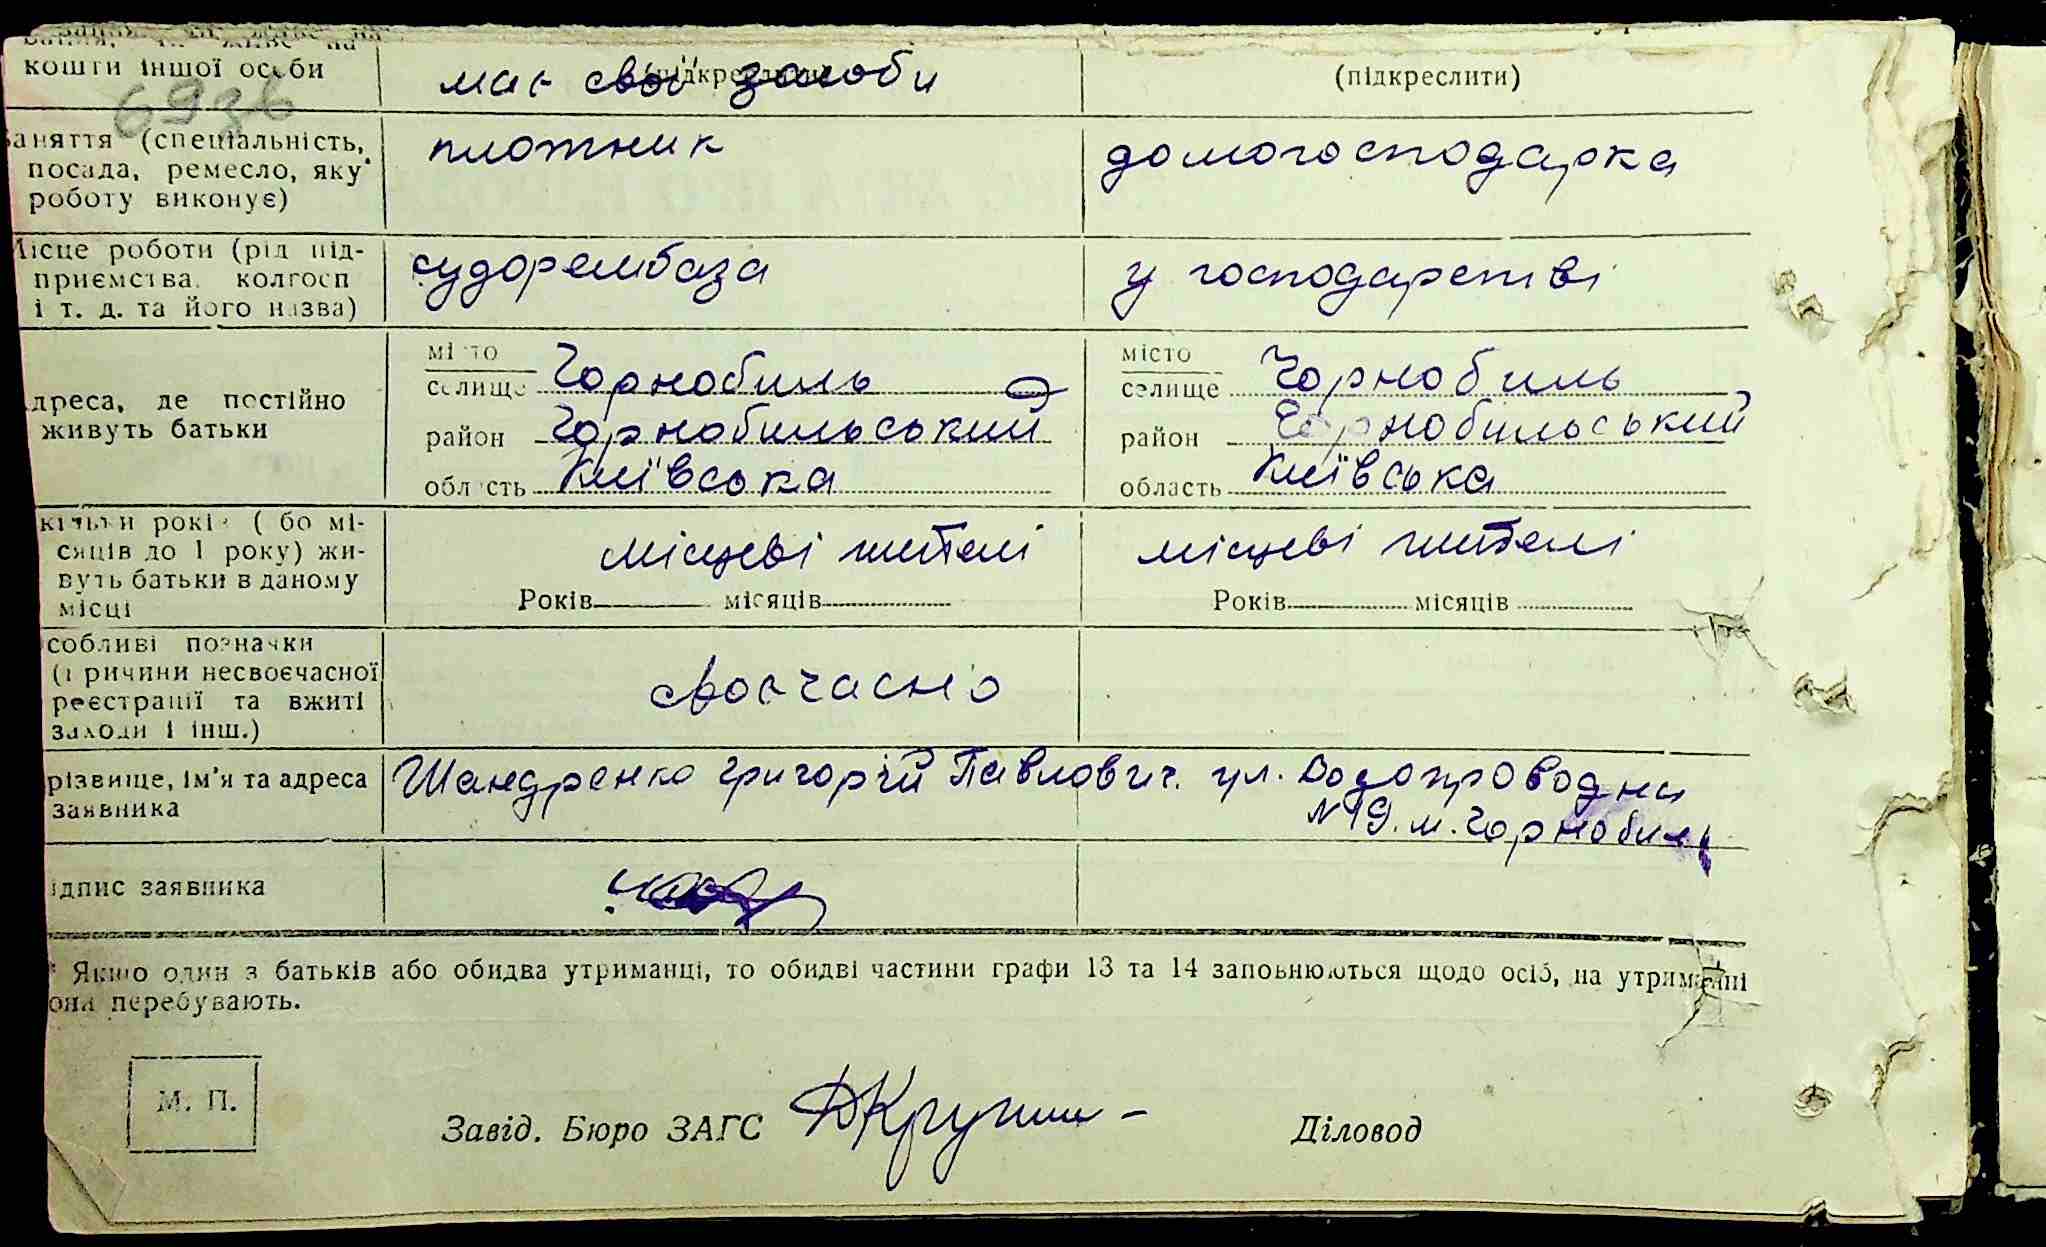 кошти іншої особи
(підкреслити)
має свої засоби
(підкреслити)
Заняття (спеціальність,
посада, ремесло, яку
роботу виконує)
плотник
домогосподарка
Місце роботи (рід під-
приємства, колгосп
і т. д. та його назва)
судорембаза
у господарстві
Адреса, де постійно
живуть батьки
місто
селище Чорнобиль
район Чорнобильський
область Київська
місто
селище Чорнобиль
район Чорнобильський
область Київська
кільки років (або мі-
сяців до 1 року) жи-
вуть батьки в даному
місці
місцеві жителі
Років місяців
місцеві жителі
Років місяців
собливі позначки
(причини несвоєчасної
реєстрації та вжиті
заходи і інш.)
своєчасно
різвище, ім'я та адреса
заявника
Шандренко Григорій Павлович. ул. Водопроводна
№19. м. Чорнобиль
ідпис заявника
* Якщо один з батьків або обидва утриманці, то обидві частини графи 13 та 14 заповнюються щодо осіб, на утриманні
они перебувають.
М. П.
Завід. Бюро ЗАГС
Діловод